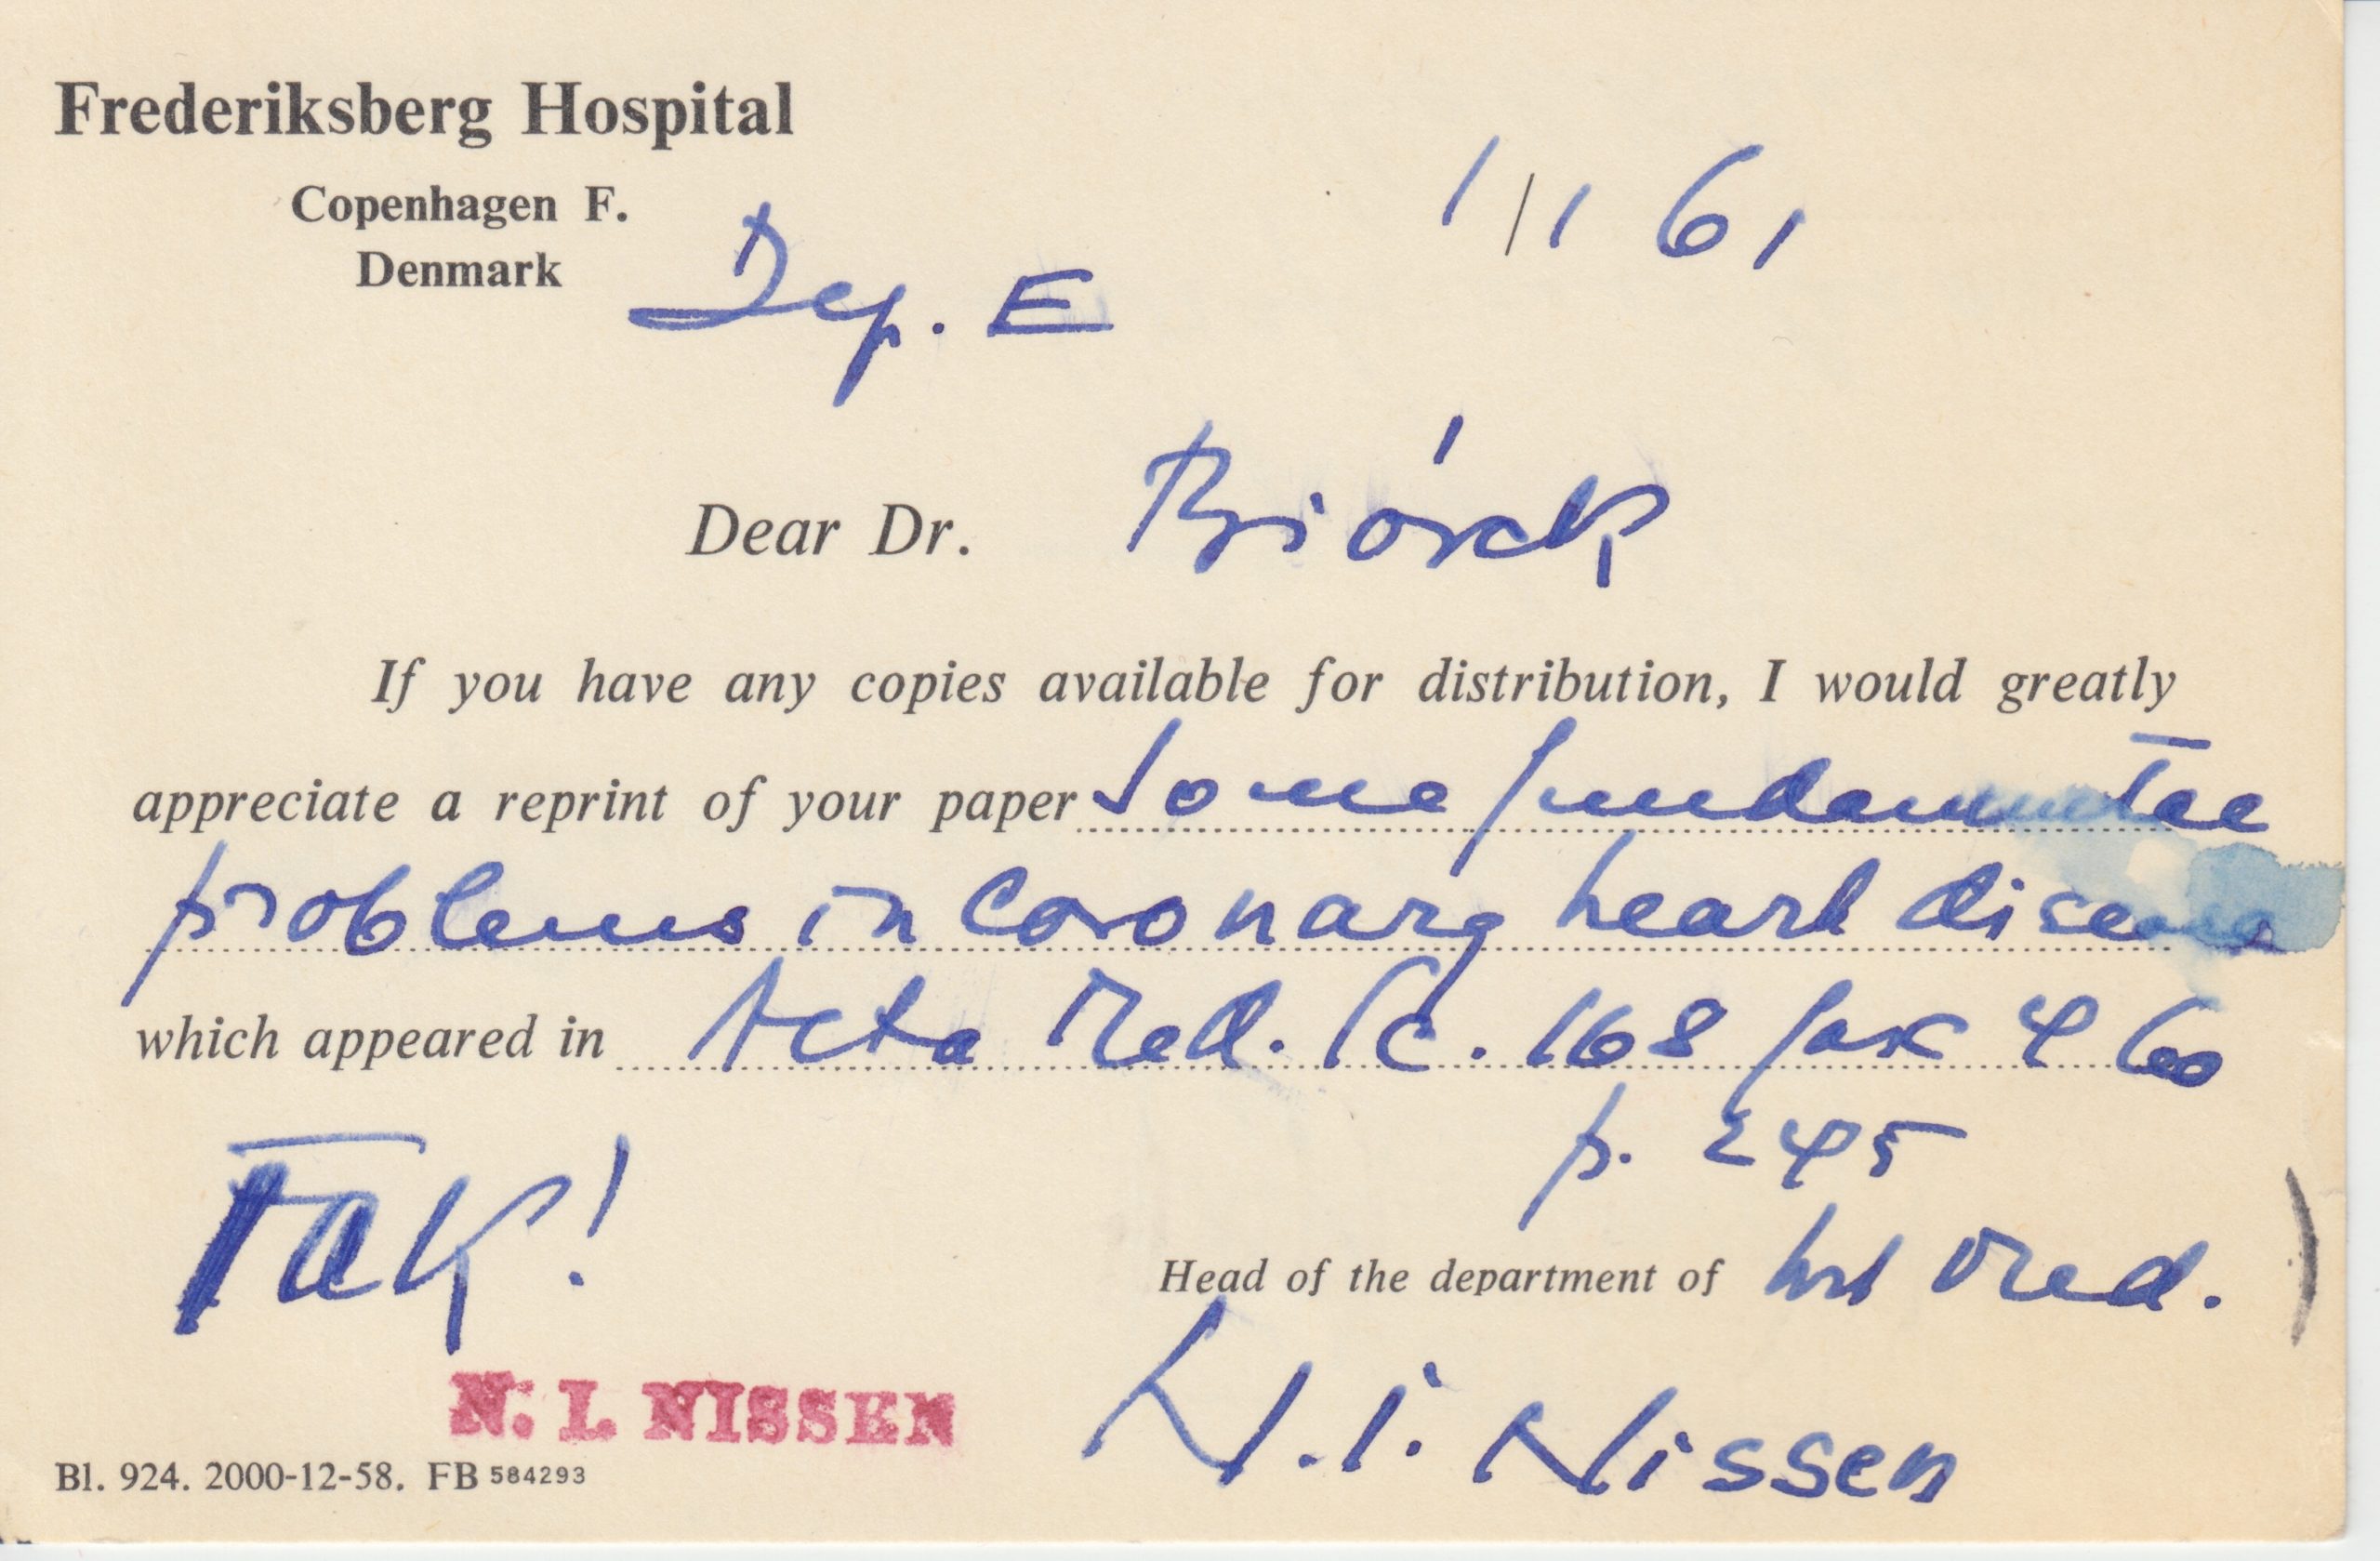 Frederiksberg Hospital
Copenhagen F.
Denmark
Dep. E
1/1 61
Dear Dr. Biörck
If you have any copies available for distribution, I would greatly
appreciate a reprint of your paper Some fundamental
problems in coronary heart disease
which appeared in Acta Med. Sc. 168 fax 4 60
p. 245
Tak!
Head of the department of Int Med.
N. I. NISSEN
N. I. Nissen
Bl. 924. 2000-12-58. FB 584293